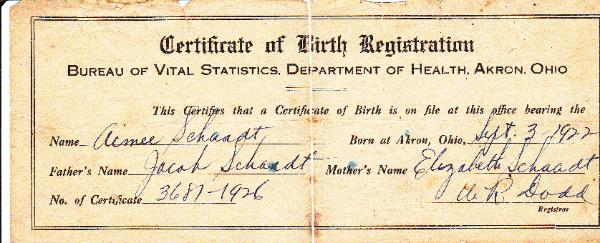 Certificate of Birth Registration
BUREAU OF VITAL STATISTICS, DEPARTMENT OF HEALTH, AKRON, OHIO
This Certifies that a Certificate of Birth is on file at this office bearing the
Name Aimee Schaadt Born at Akron, Ohio, Sept. 3, 1922
Father's Name Jacob Schaadt Mother's Name Elizabeth Schaadt
No. of Certificate 3687-1926 A. R. Dodd
Registrar